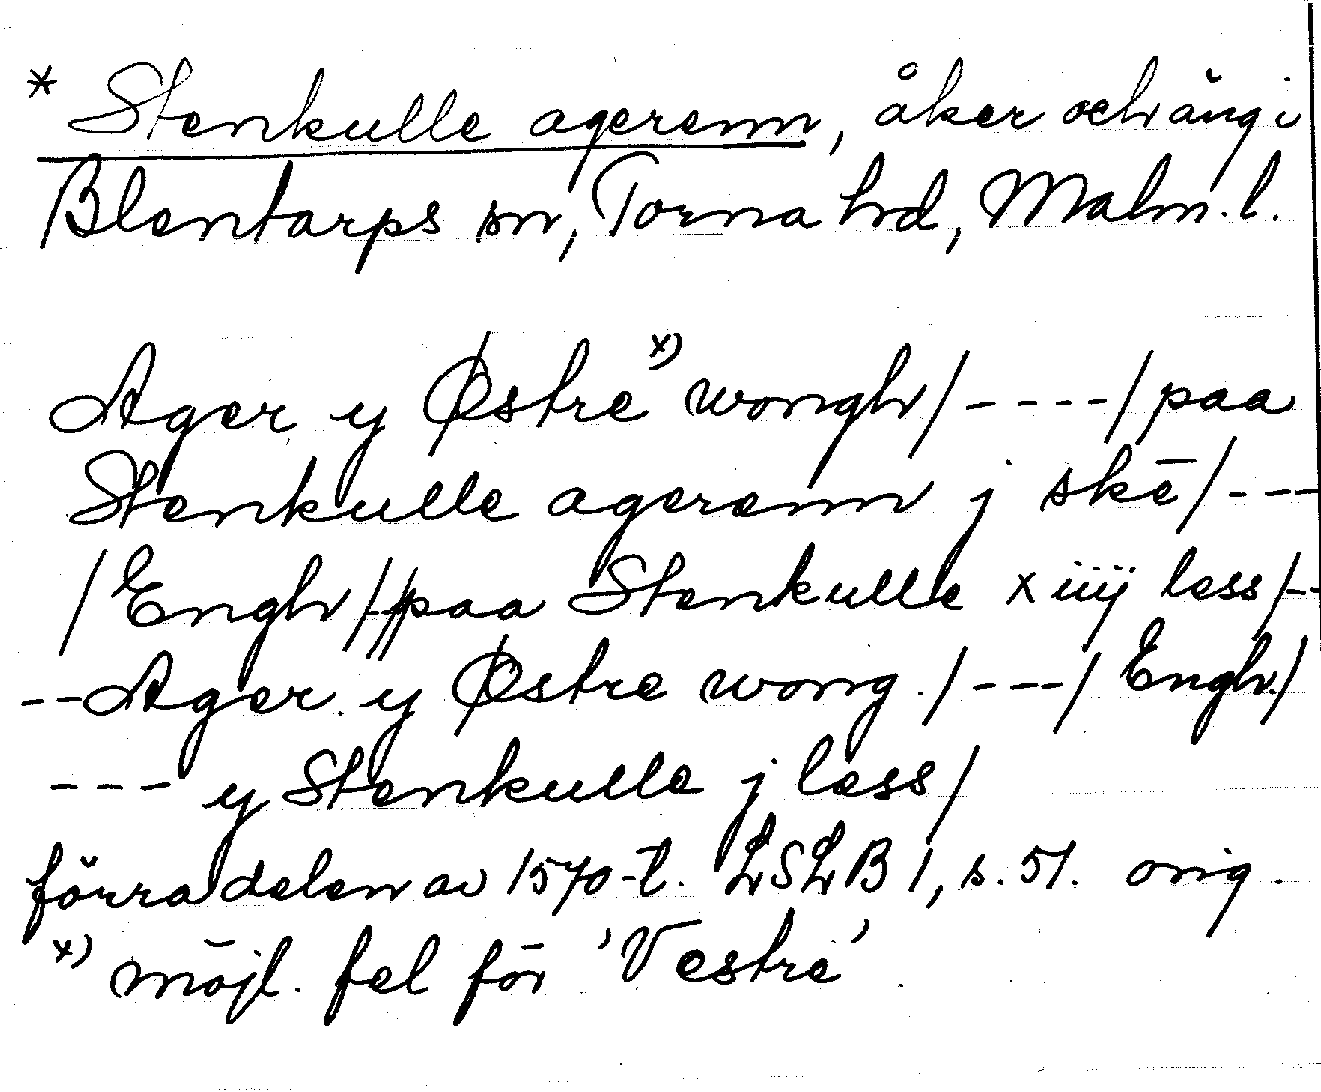 * Stenkulle agerenn, åker och äng i
Blentarps sn, Torna hrd, Malm. l.
Ager y Østre x) wongh/----/paa
Stenkulle agerenn j skē/---
/Engh/--/paa Stenkulle x iiij less/--
--Ager y Østre wong./---/Engh/
--- y Stenkulle j less/
förra delen av 1570-t. LSLB 1, s. 51. orig.
x) möjl. fel för 'Vestre'.